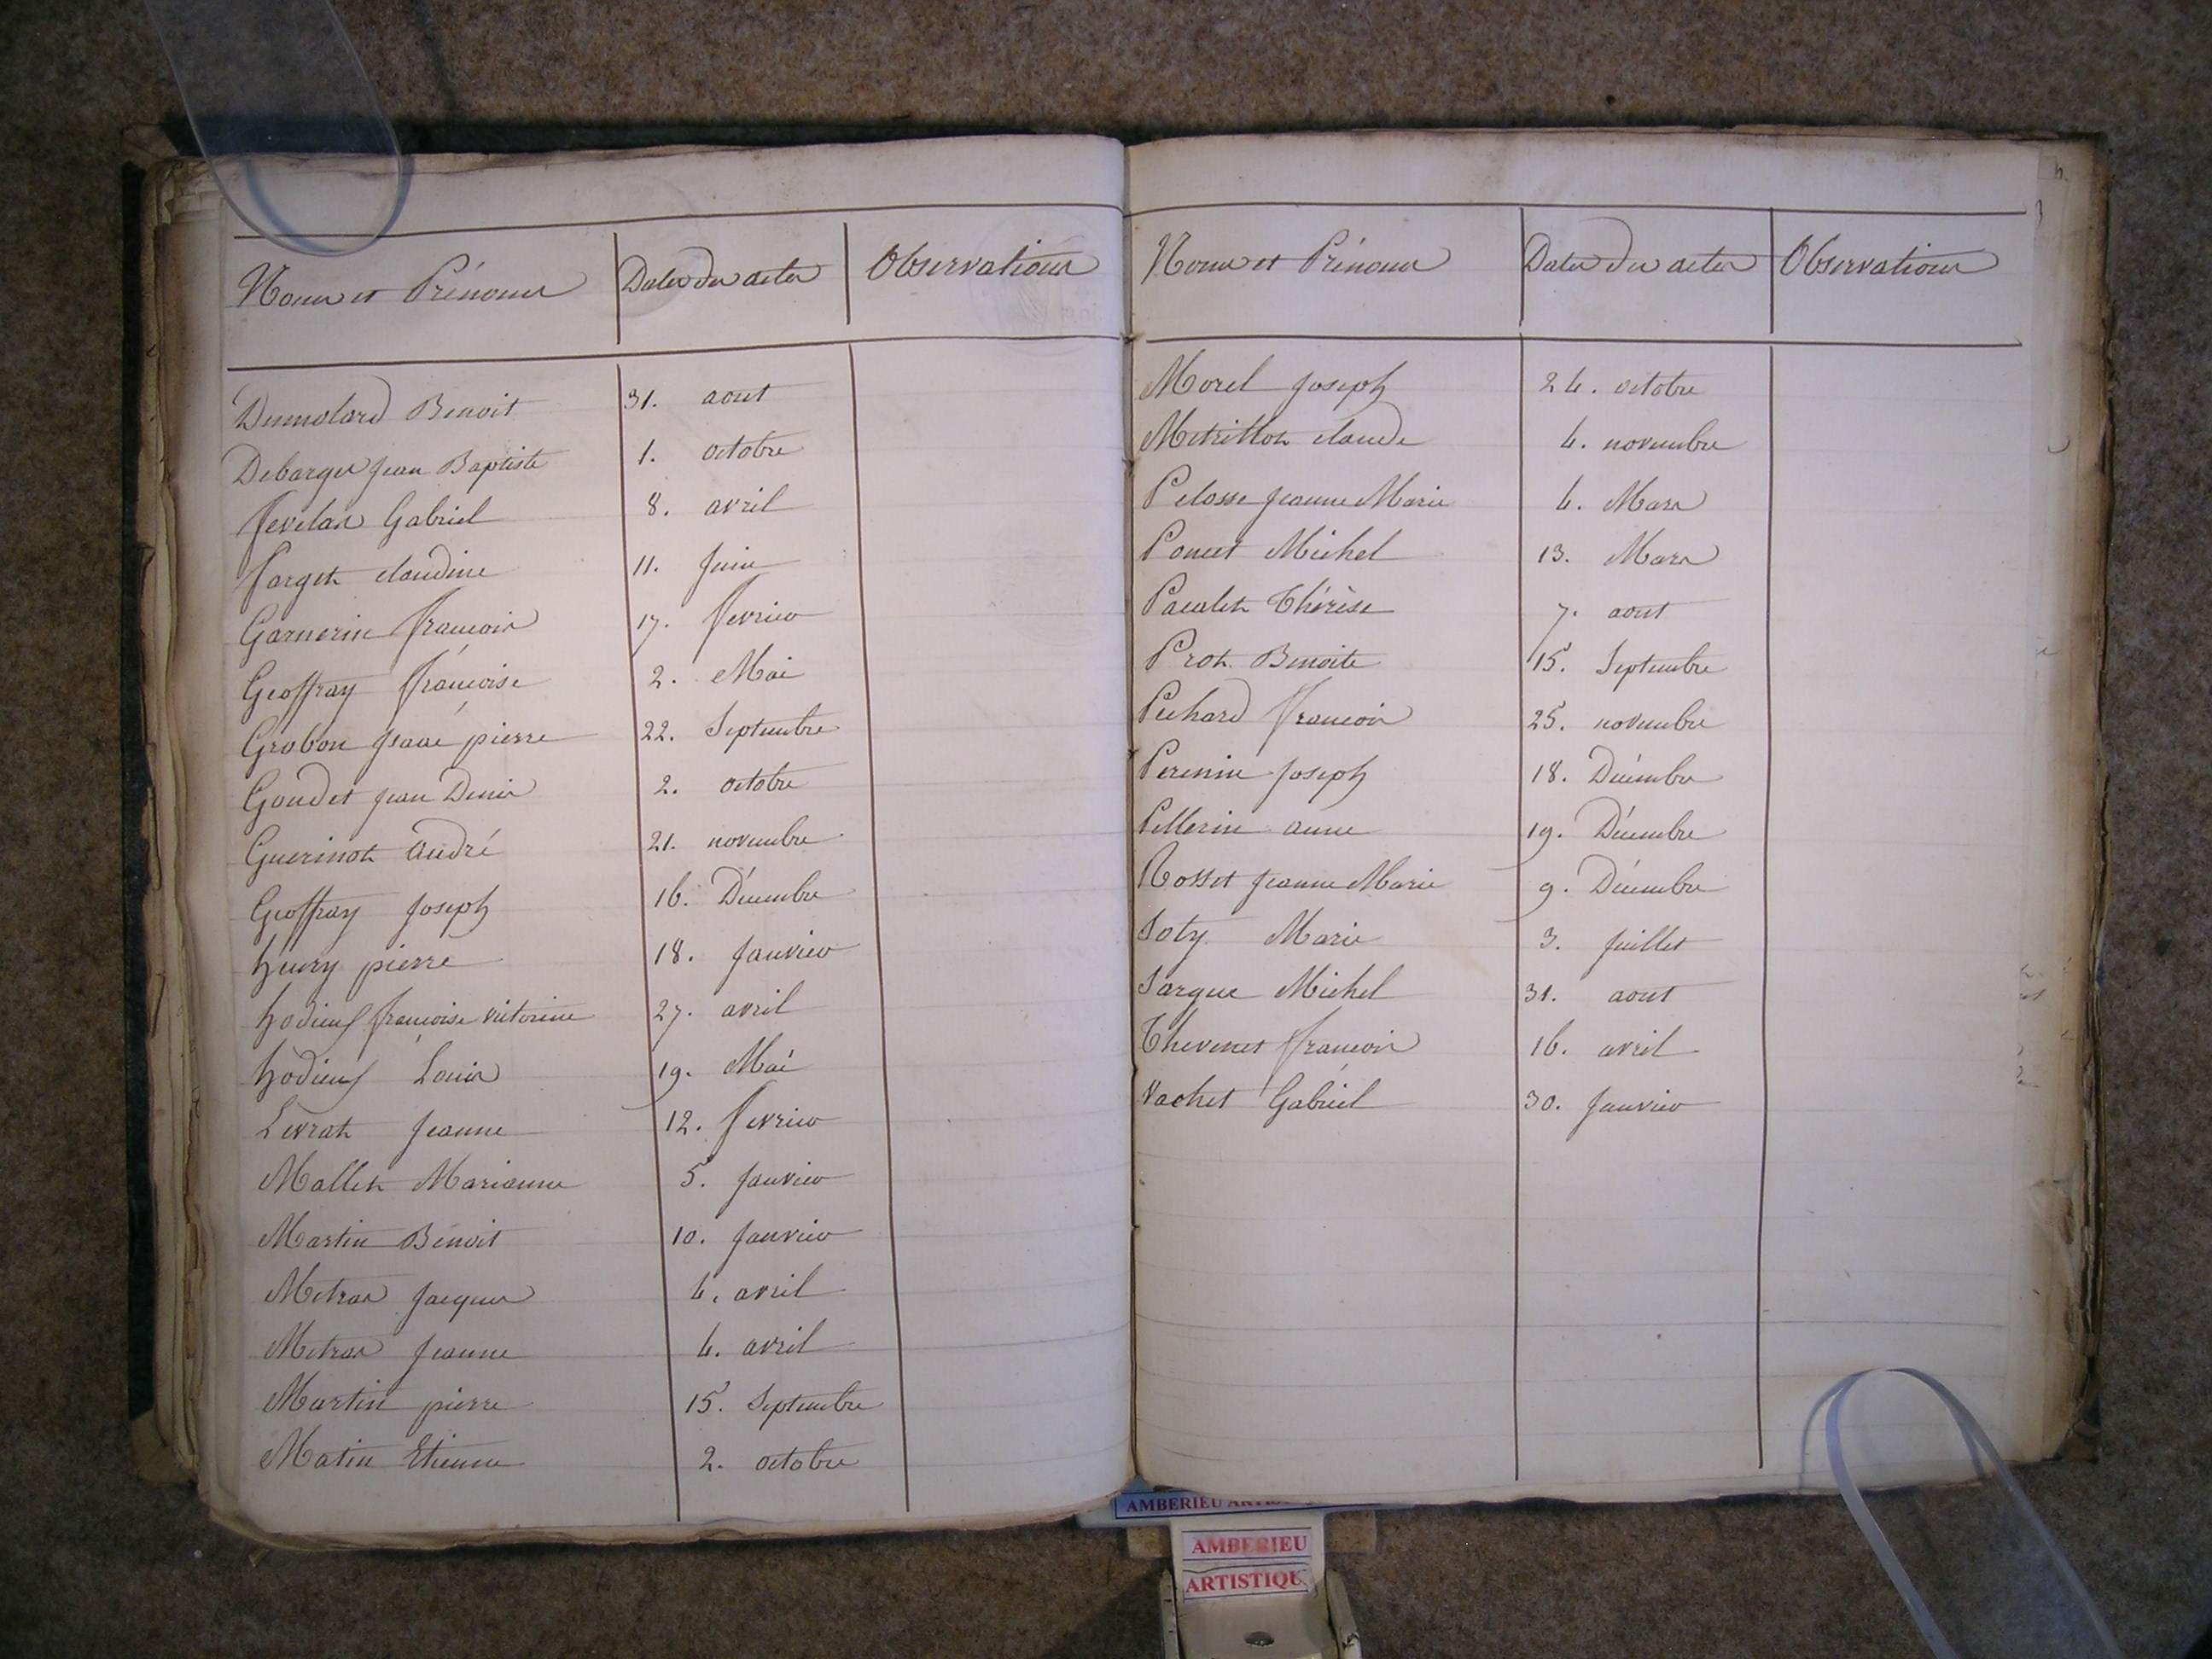 Noms et Prénoms Dates des actes Observations
Dumolard Benoit 31. aout
Debarges jean Baptiste 1. octobre
fevelas Gabriel 8. avril
farget claudine 11. juin
Garnerin françois 17. fevrier
Geoffray françoise 2. Mai
Grobon pierre 22. Septembre
Goudet jean Denis 2. octobre
Guerinot andré 21. novembre
Geoffray joseph 16. Décembre
hury pierre 18. janvier
hodieuf françoise victorine 27. avril
hodieuf Louis 19. Mai
Levrat jeanne 12. fevrier
Mallet Marianne 5. janvier
Martin Benoit 10. janvier
Metras jacques 4. avril
Metras jeanne 4. avril
Martin pierre 15. Septembre
Matin Etienne 2. octobre
Noms et Prénoms Dates des actes Observations
Morel joseph 24. octobre
Metrillot claude 4. novembre
Pelosse jeanne Marie 4. Mars
Poncet Michel 13. Mars
Thérèse 7. aout
Prot Benoite 15. Septembre
Pichard françois 25. novembre
Perenin joseph 18. Décembre
Pellerin anne 19. Décembre
Rosset jeanne Marie 9. Décembre
Soty Marie 3. juillet
Sargue Michel 31. aout
Thevenet françois 16. avril
Vachet Gabriel 30. janvier
AMBERIEU
AMBERIEU
ARTISTIQU